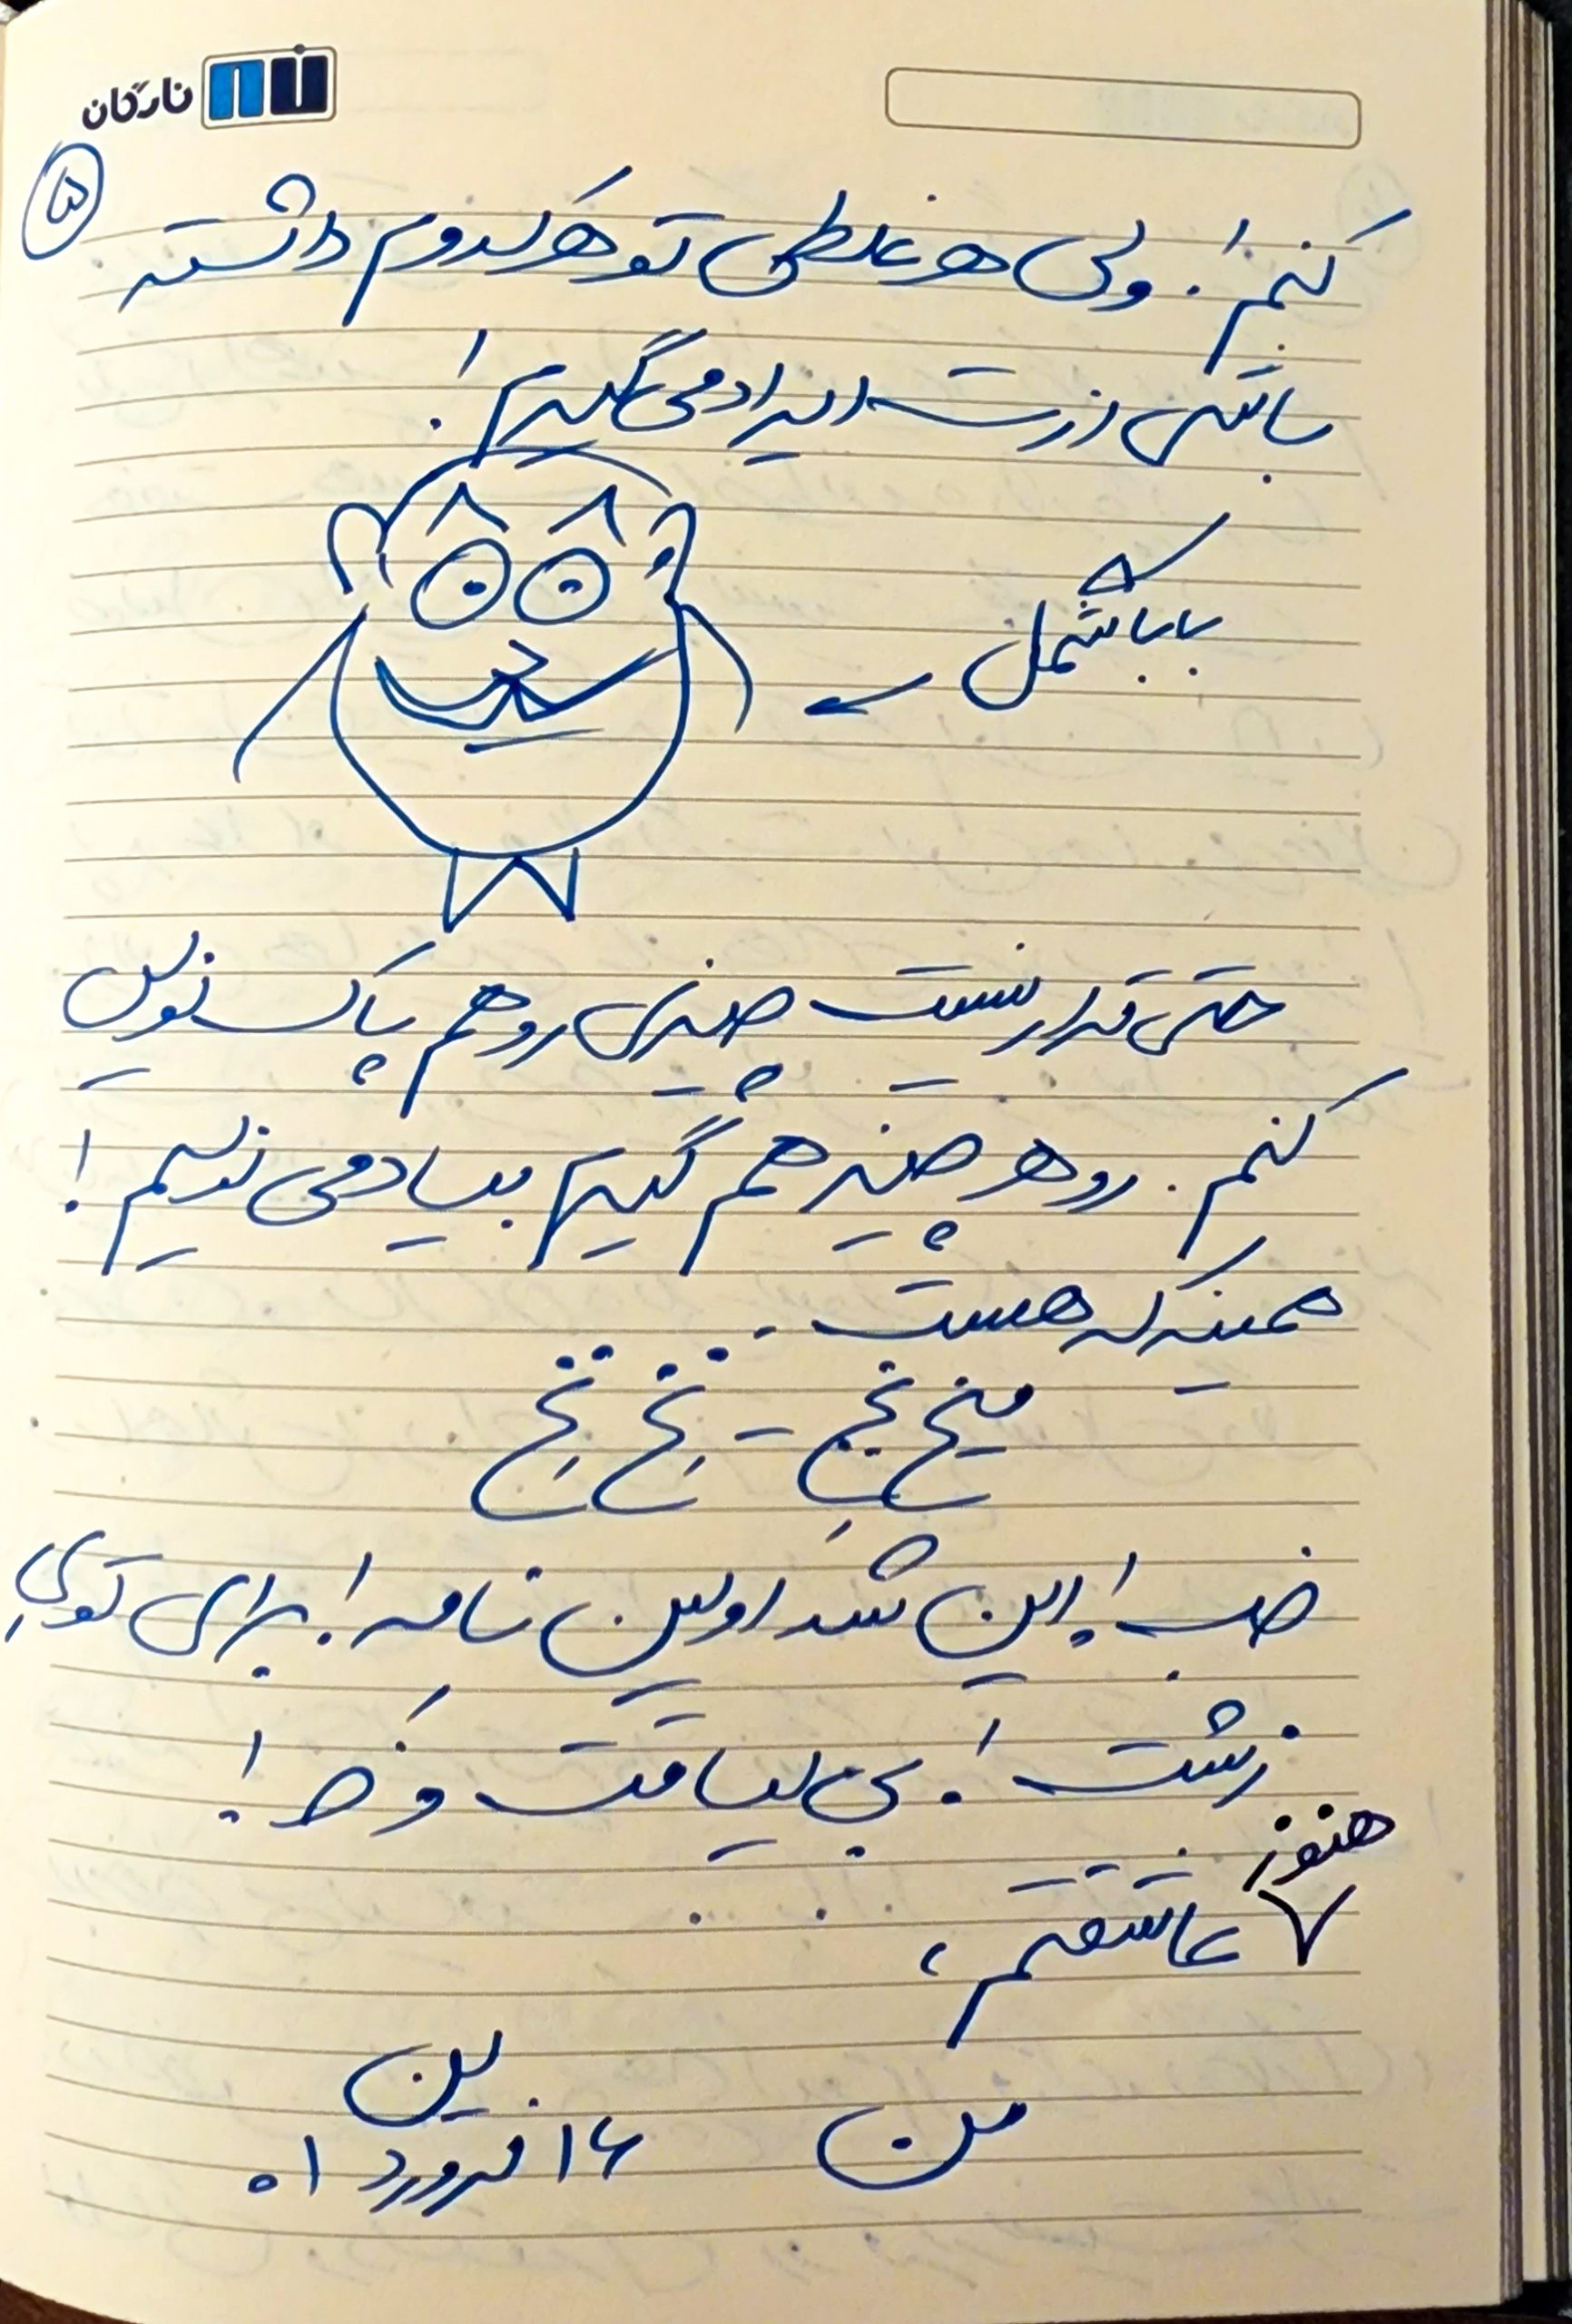 نارگان
۵
کنم! ولی هر غلطی تو هرکدوم داشته
باشی ازت ایراد می‌گیرم!
بابا شمل
حتی قرار نیست چیزی رو هم پاک‌نویس
کنم. رو هر چیز هم گیر بیاد می‌نویسم!
همینه که هست.
میخ نخ - نخ نخ
خب! این شد اولین نامه! برای تویِ
زشت! بی لیاقت و خر!
هنوز
عاشقتم،
من
۱۶ فروردین ۰۱